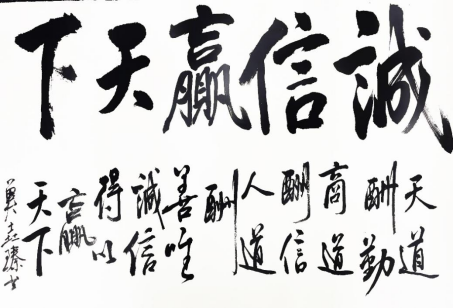 誠信贏天下
天道
酬勤
商道
酬信
人道
酬
善唯
誠信
得以
贏
天下